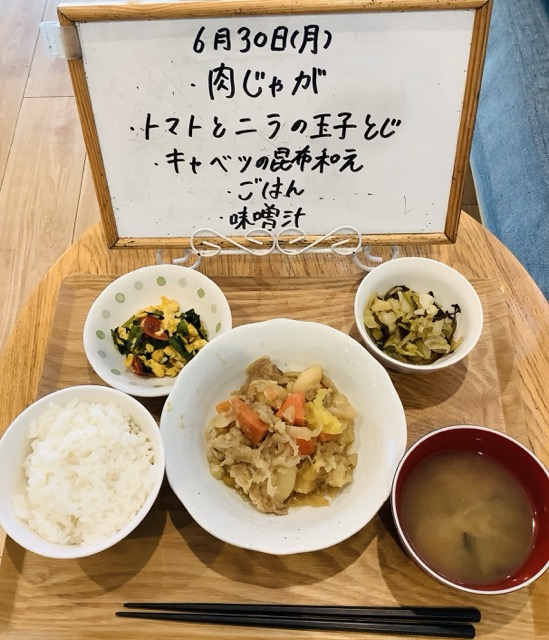 6月30日(月)
・肉じゃが
・トマトとニラの玉子とじ
・キャベツの昆布和え
・ごはん
・味噌汁